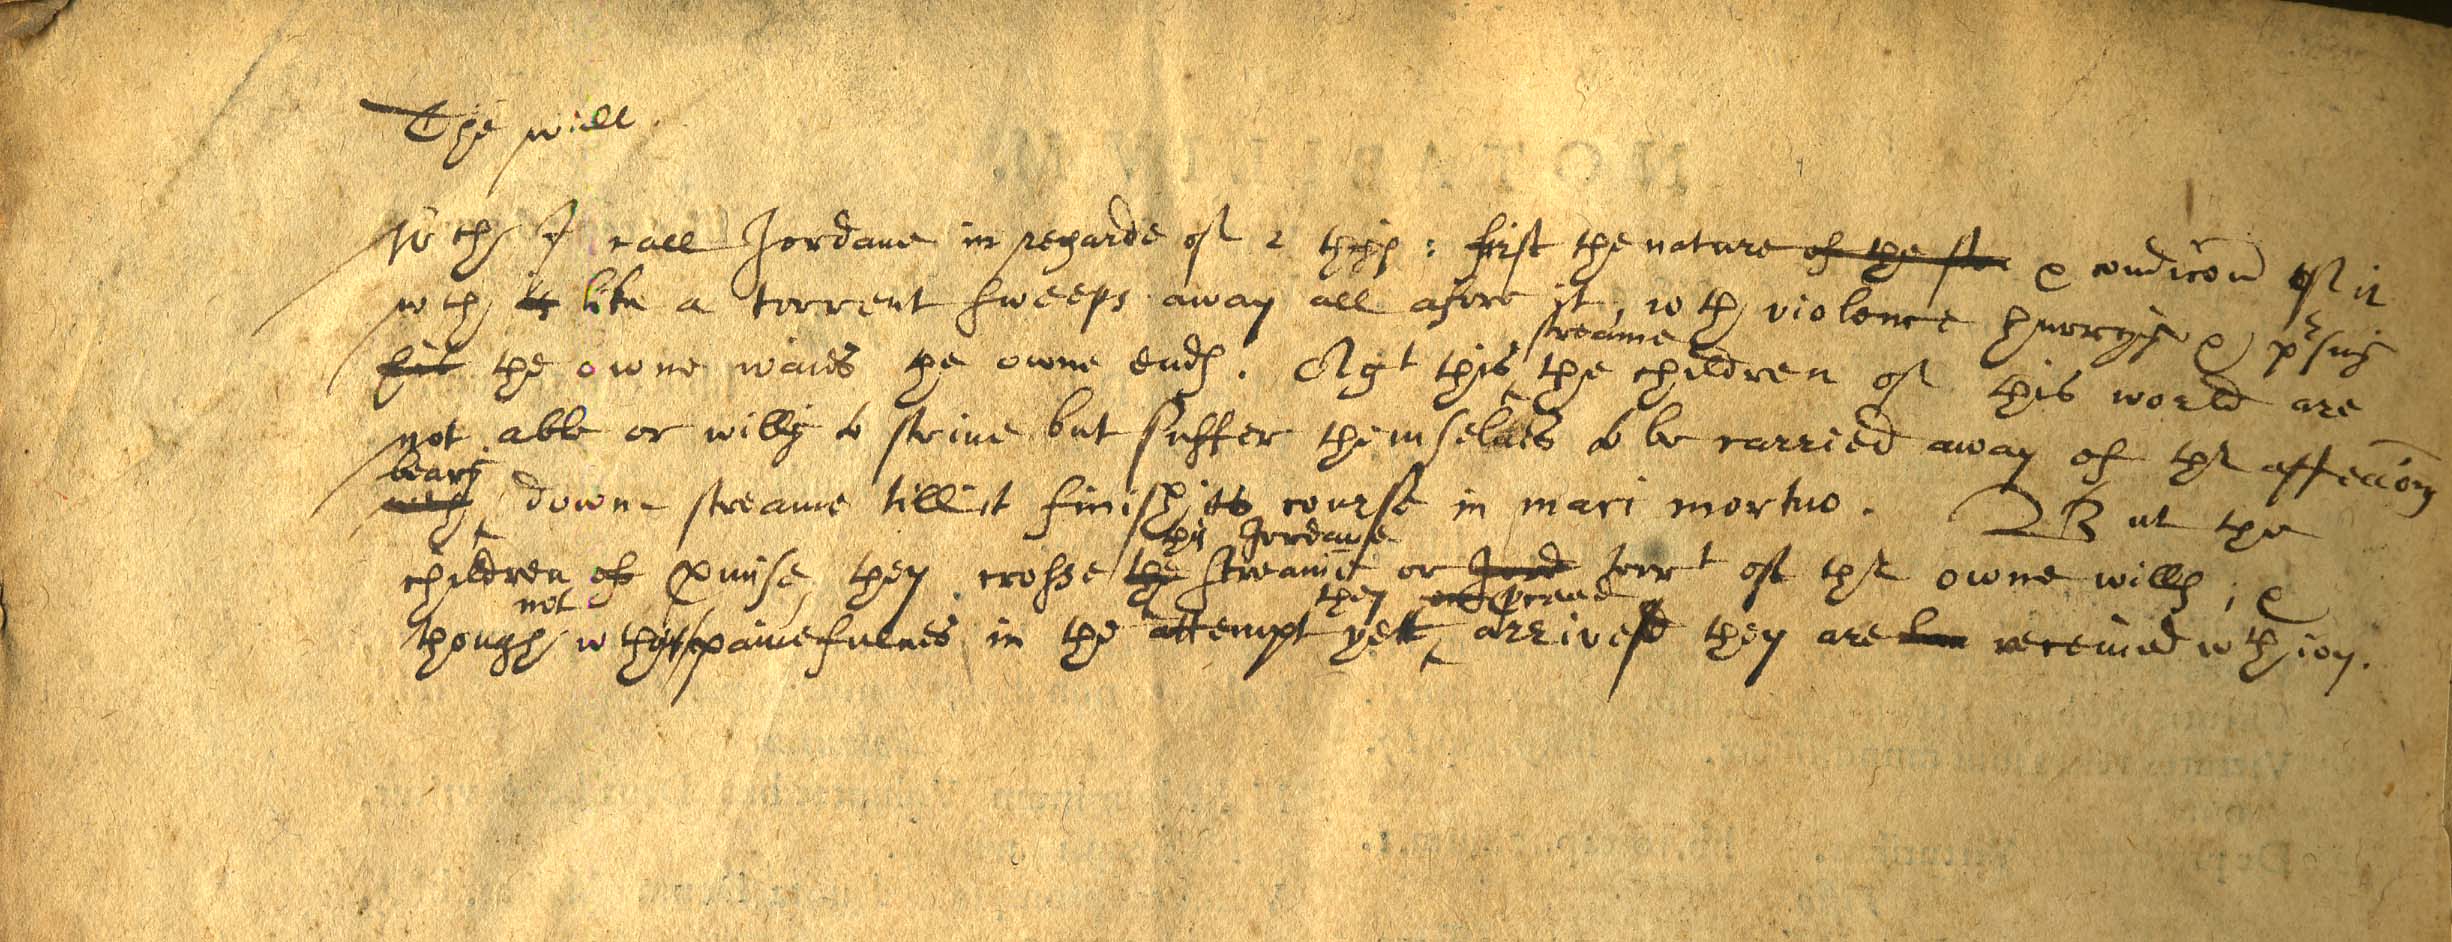 The will.
Wch I call Jordane in regarde of 2 things : first the nature of the & condicon of it
wch is like a torrent sweeps away all afore it, wth violence hurrying &
his the owne waies the owne ends. Agt this streame the children of this world are
not able or willing to striue but suffer themselues to be carried away of thr affeccons
bearing downe streame till it finish its course in mari mortuo. But the
children of promise they crosse the this streame or Jord Jordane torrt of thr owne wills ; &
though not wthout painefulnes in the attempt yet they arrived they are receiued wth ioy.